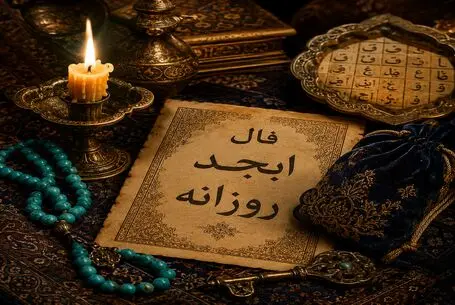 فال
ابجد
روزانه